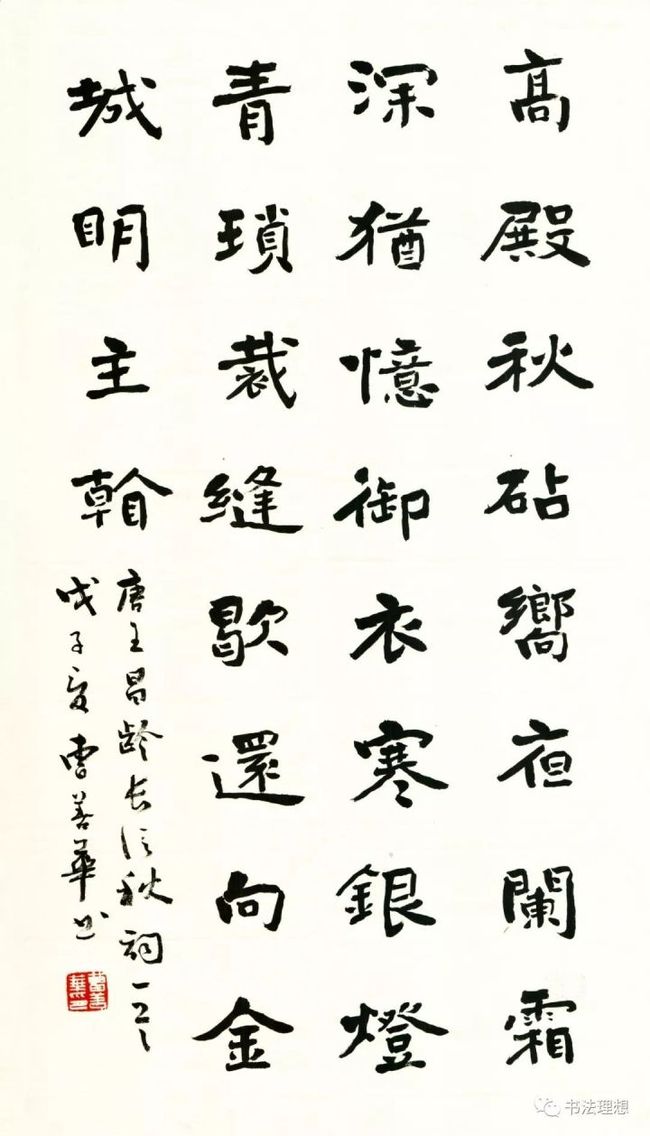 高殿秋砧嚮夜闌霜
深猶憶御衣寒銀燈
青瑣裁縫歇還向金
城明主𠦝
唐王昌齡长信秋詞一首
戊子夏曹善華书
曹善華
书法理想